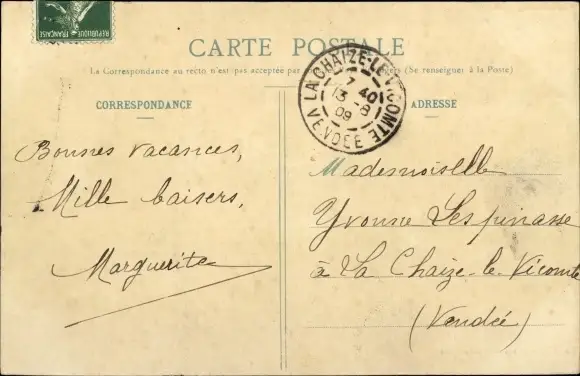 REPUBLIQUE FRANÇAISE
CARTE POSTALE
La Correspondance au recto n'est pas acceptée par (Se renseigner à la Poste)
CORRESPONDANCE
ADRESSE
LA CHAIZE-LE-VICOMTE
7 40
13 -8
09
VENDÉE
Bonnes vacances,
Mille baisers,
Marguerite
Mademoiselle
Yvonne Lespinasse
à La Chaize-le-Vicomte
(Vendée)